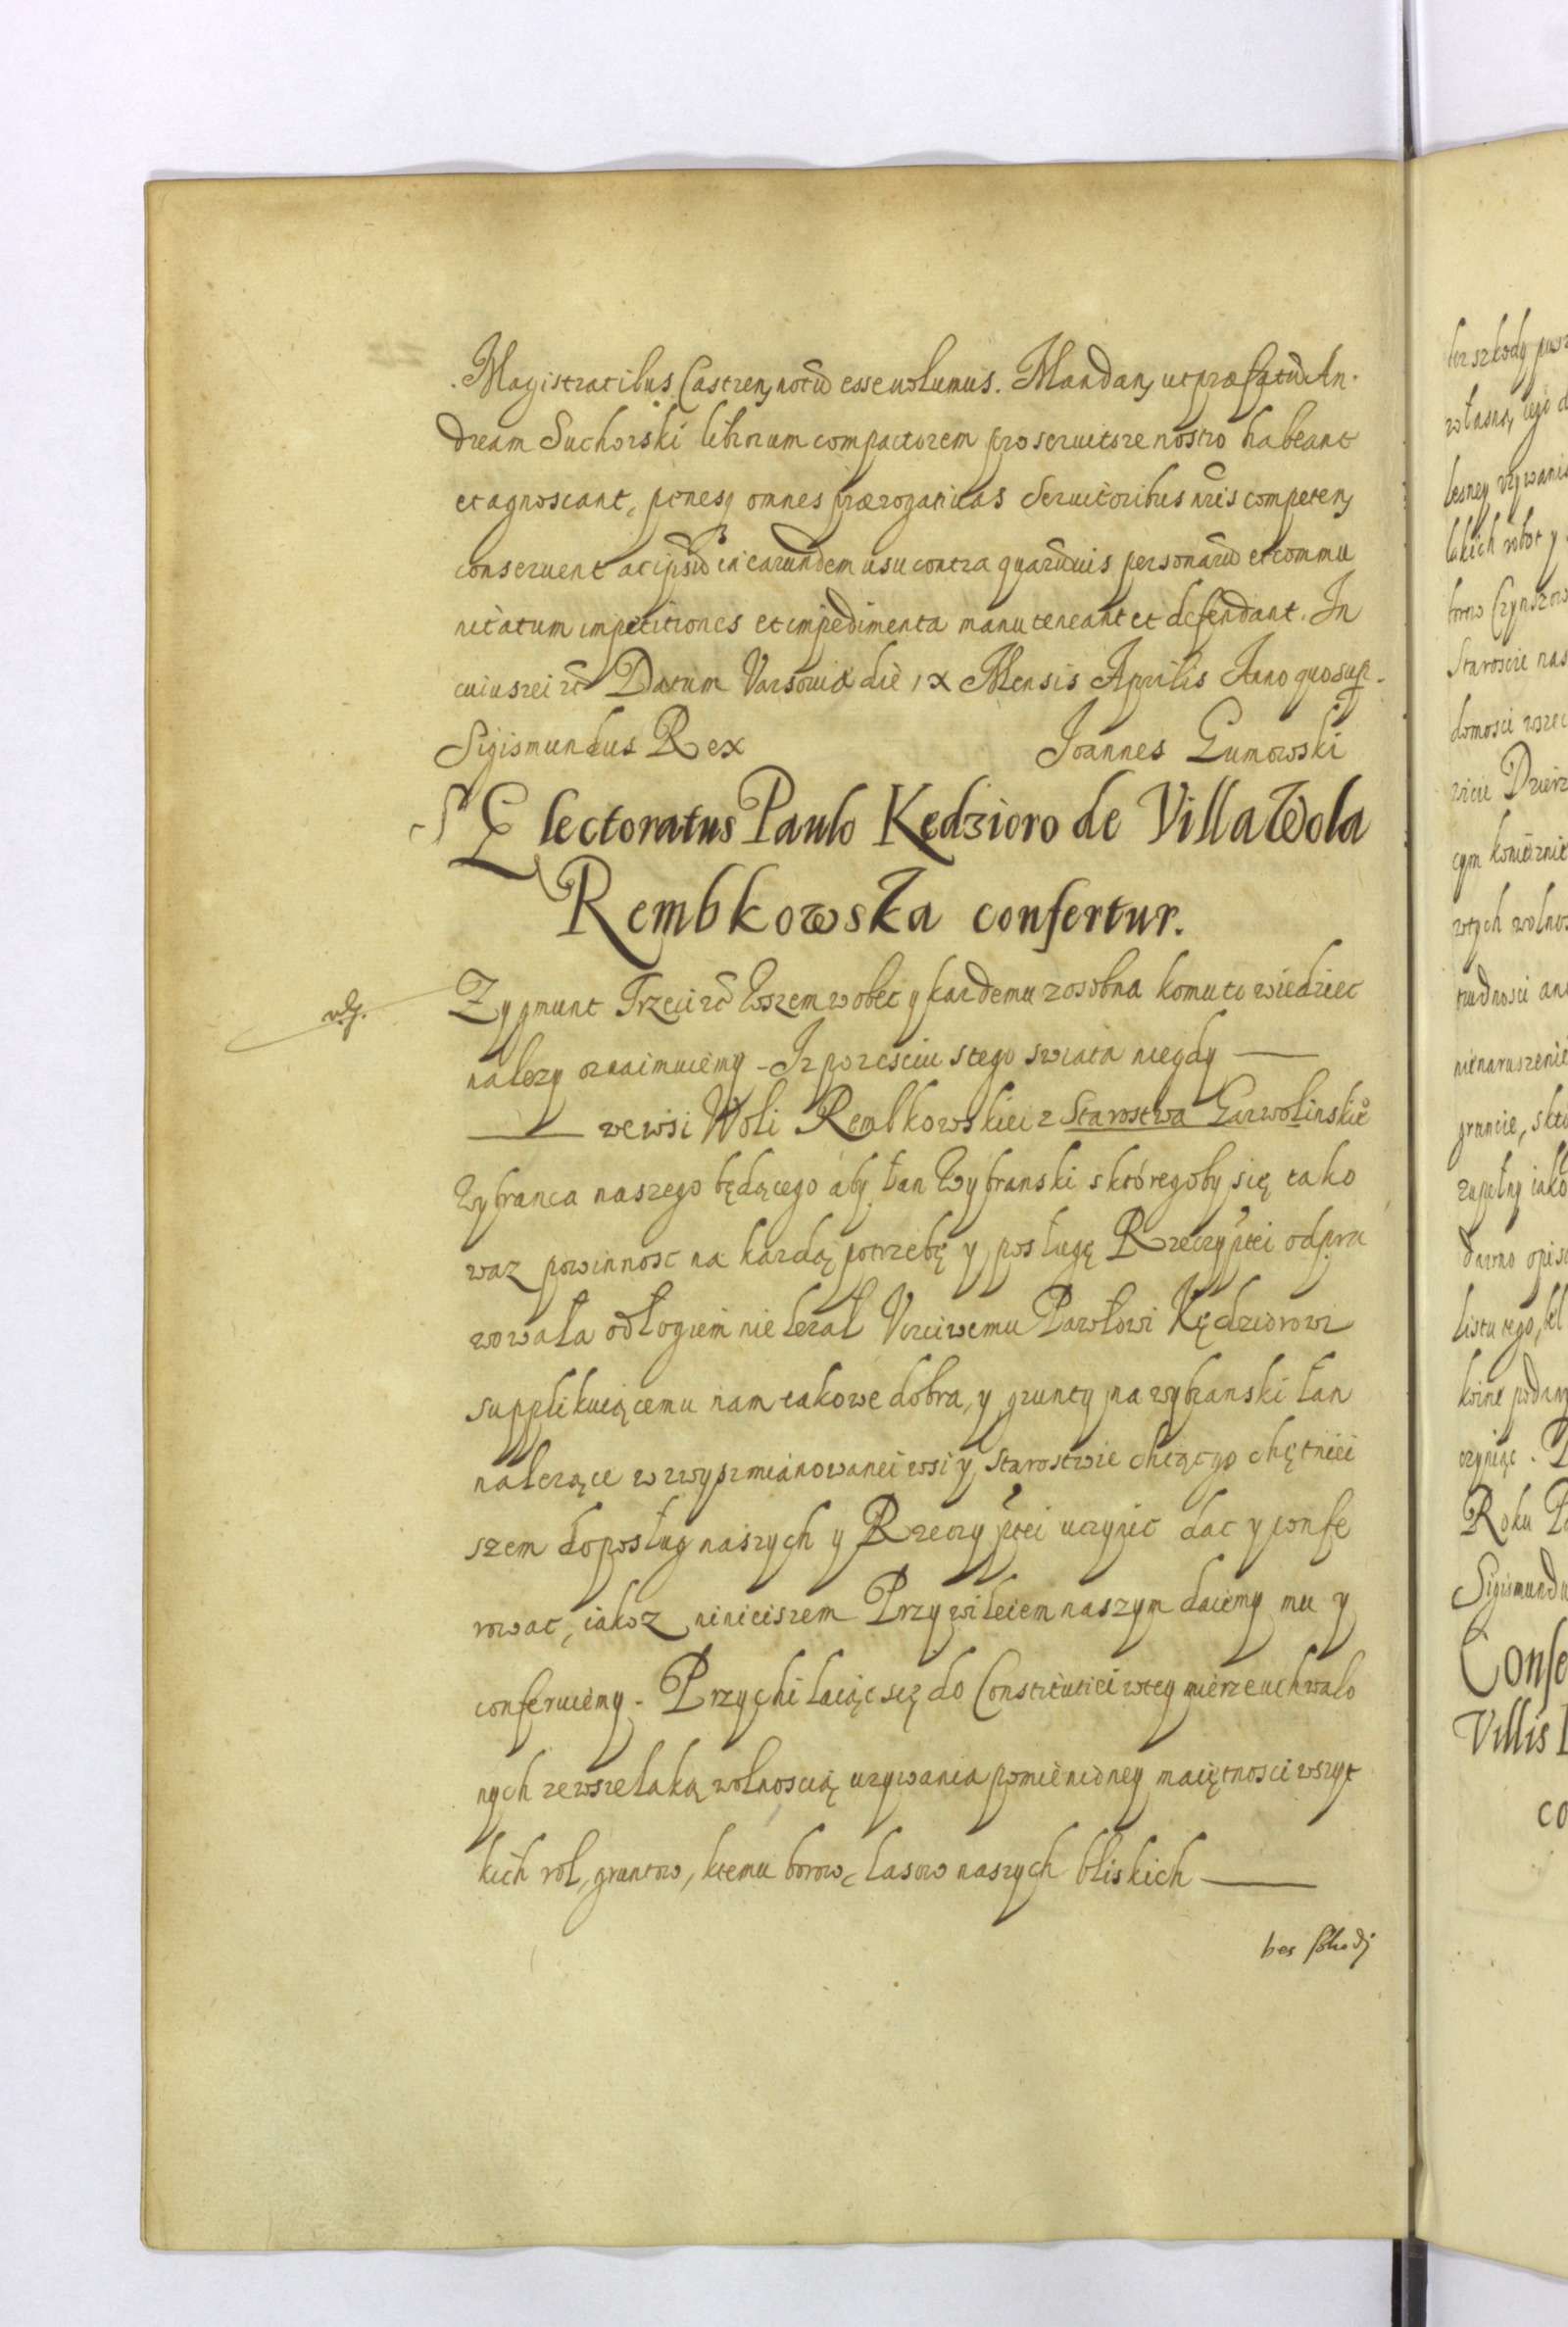 Magistratibus Castren, notũ esse volumus. Mandan, ut præfatũ An-
dream Suchorski librorum compactorem pro servitore nostro habeant
et agnoscant, penesq omnes prærogativas Servitoribus nr̃is competen,
conservent ac ipsũ in earundem usu contra quarũvis personarũ et commu
nitatum impetitiones et impedimenta manuteneant et defendant. In
cuius rei rc̃ Datum Varsoviæ die IX Mensis Aprilis Anno quo sup.
Sigismundus Rex Joannes Gumowski
Electoratus Paulo Kędzioro de Villa Wola
Rembkowska confertur.
Zygmunt Trzeci rc̃ Wszem wobec y kazdemu zosobna komu to wiedziec
nalezy oznaimuiemy - Iz po ześciu stego swiata niegdy ———
——— we wsi Woli Rembkowskiei z Starostwa Garwolinskie°
Wybranca naszego będącego aby łan Wybranski s którego by się tako
waz powinnosc na kazdą potrzebę y posługę Rzeczyptei odpra
wowała odłogiem nie lezał Vcciwemu Pawłowi Kędziorowi
supplikuiącemu nam takowe dobra, y grunty na wybranski łan
nalezące w zwysz mianowanei wsi y Starostwie chcąc go chętniei
szem do posług naszych y Rzeczyptei uczynic dac y confe
rowac, iakoz ninieiszem Przywileiem naszym daiemy mu y
conferuiemy - Przychilaiąc się do Constitutiei w tey mierze uchwalo
nych ze wszelaką wolnoscią uzywania pomienioney maiętnosci wszyt
kich rol, gruntow, ktemu borow, lasow naszych bliskich ———
bes skody